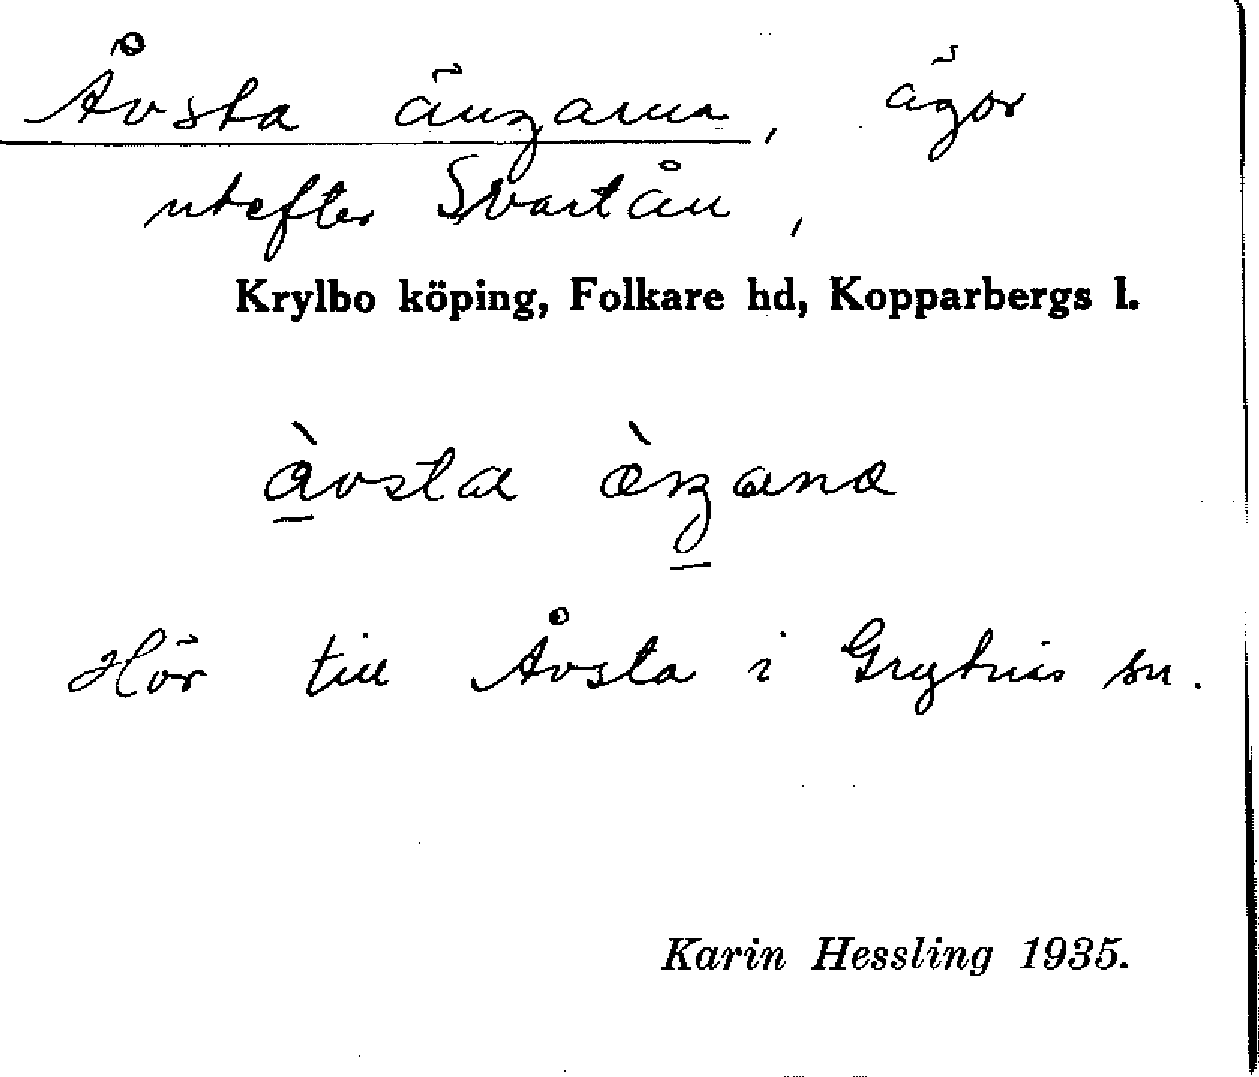 Åvsta ängarna, ägor
utefter Svartån,
Krylbo köping, Folkare hd, Kopparbergs l.
Hör till Åvsta i Grytnäs sn.
Karin Hessling 1935.